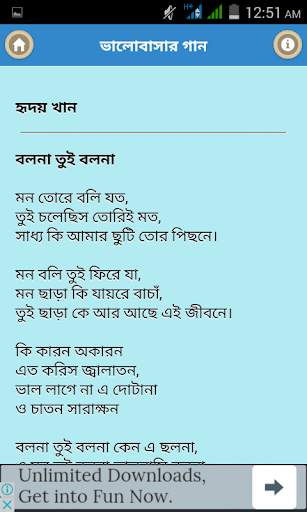 H+
12:51 AM
ভালোবাসার গান
হৃদয় খান
বলনা তুই বলনা
মন তোরে বলি যত,
তুই চলেছিস তোরিই মত,
সাধ্য কি আমার ছুটি তোর পিছনে।
মন বলি তুই ফিরে যা,
মন ছাড়া কি যায়রে বাচাঁ,
তুই ছাড়া কে আর আছে এই জীবনে।
কি কারন অকারন
এত করিস জ্বালাতন,
ভাল লাগে না এ দোটানা
ও চাতন সারাক্ষন
বলনা তুই বলনা কেন এ ছলনা,
Unlimited Downloads,
Get into Fun Now.